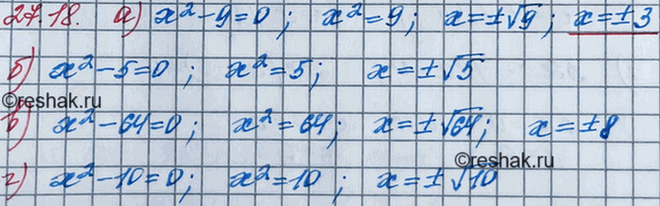 27.18. а) x²-9=0; x²=9; x=±√9; x=±3
б) x²-5=0; x²=5; x=±√5
©reshak.ru
в) x²-64=0; x²=64; x=±√64; x=±8
©reshak.ru
г) x²-10=0; x²=10; x=±√10